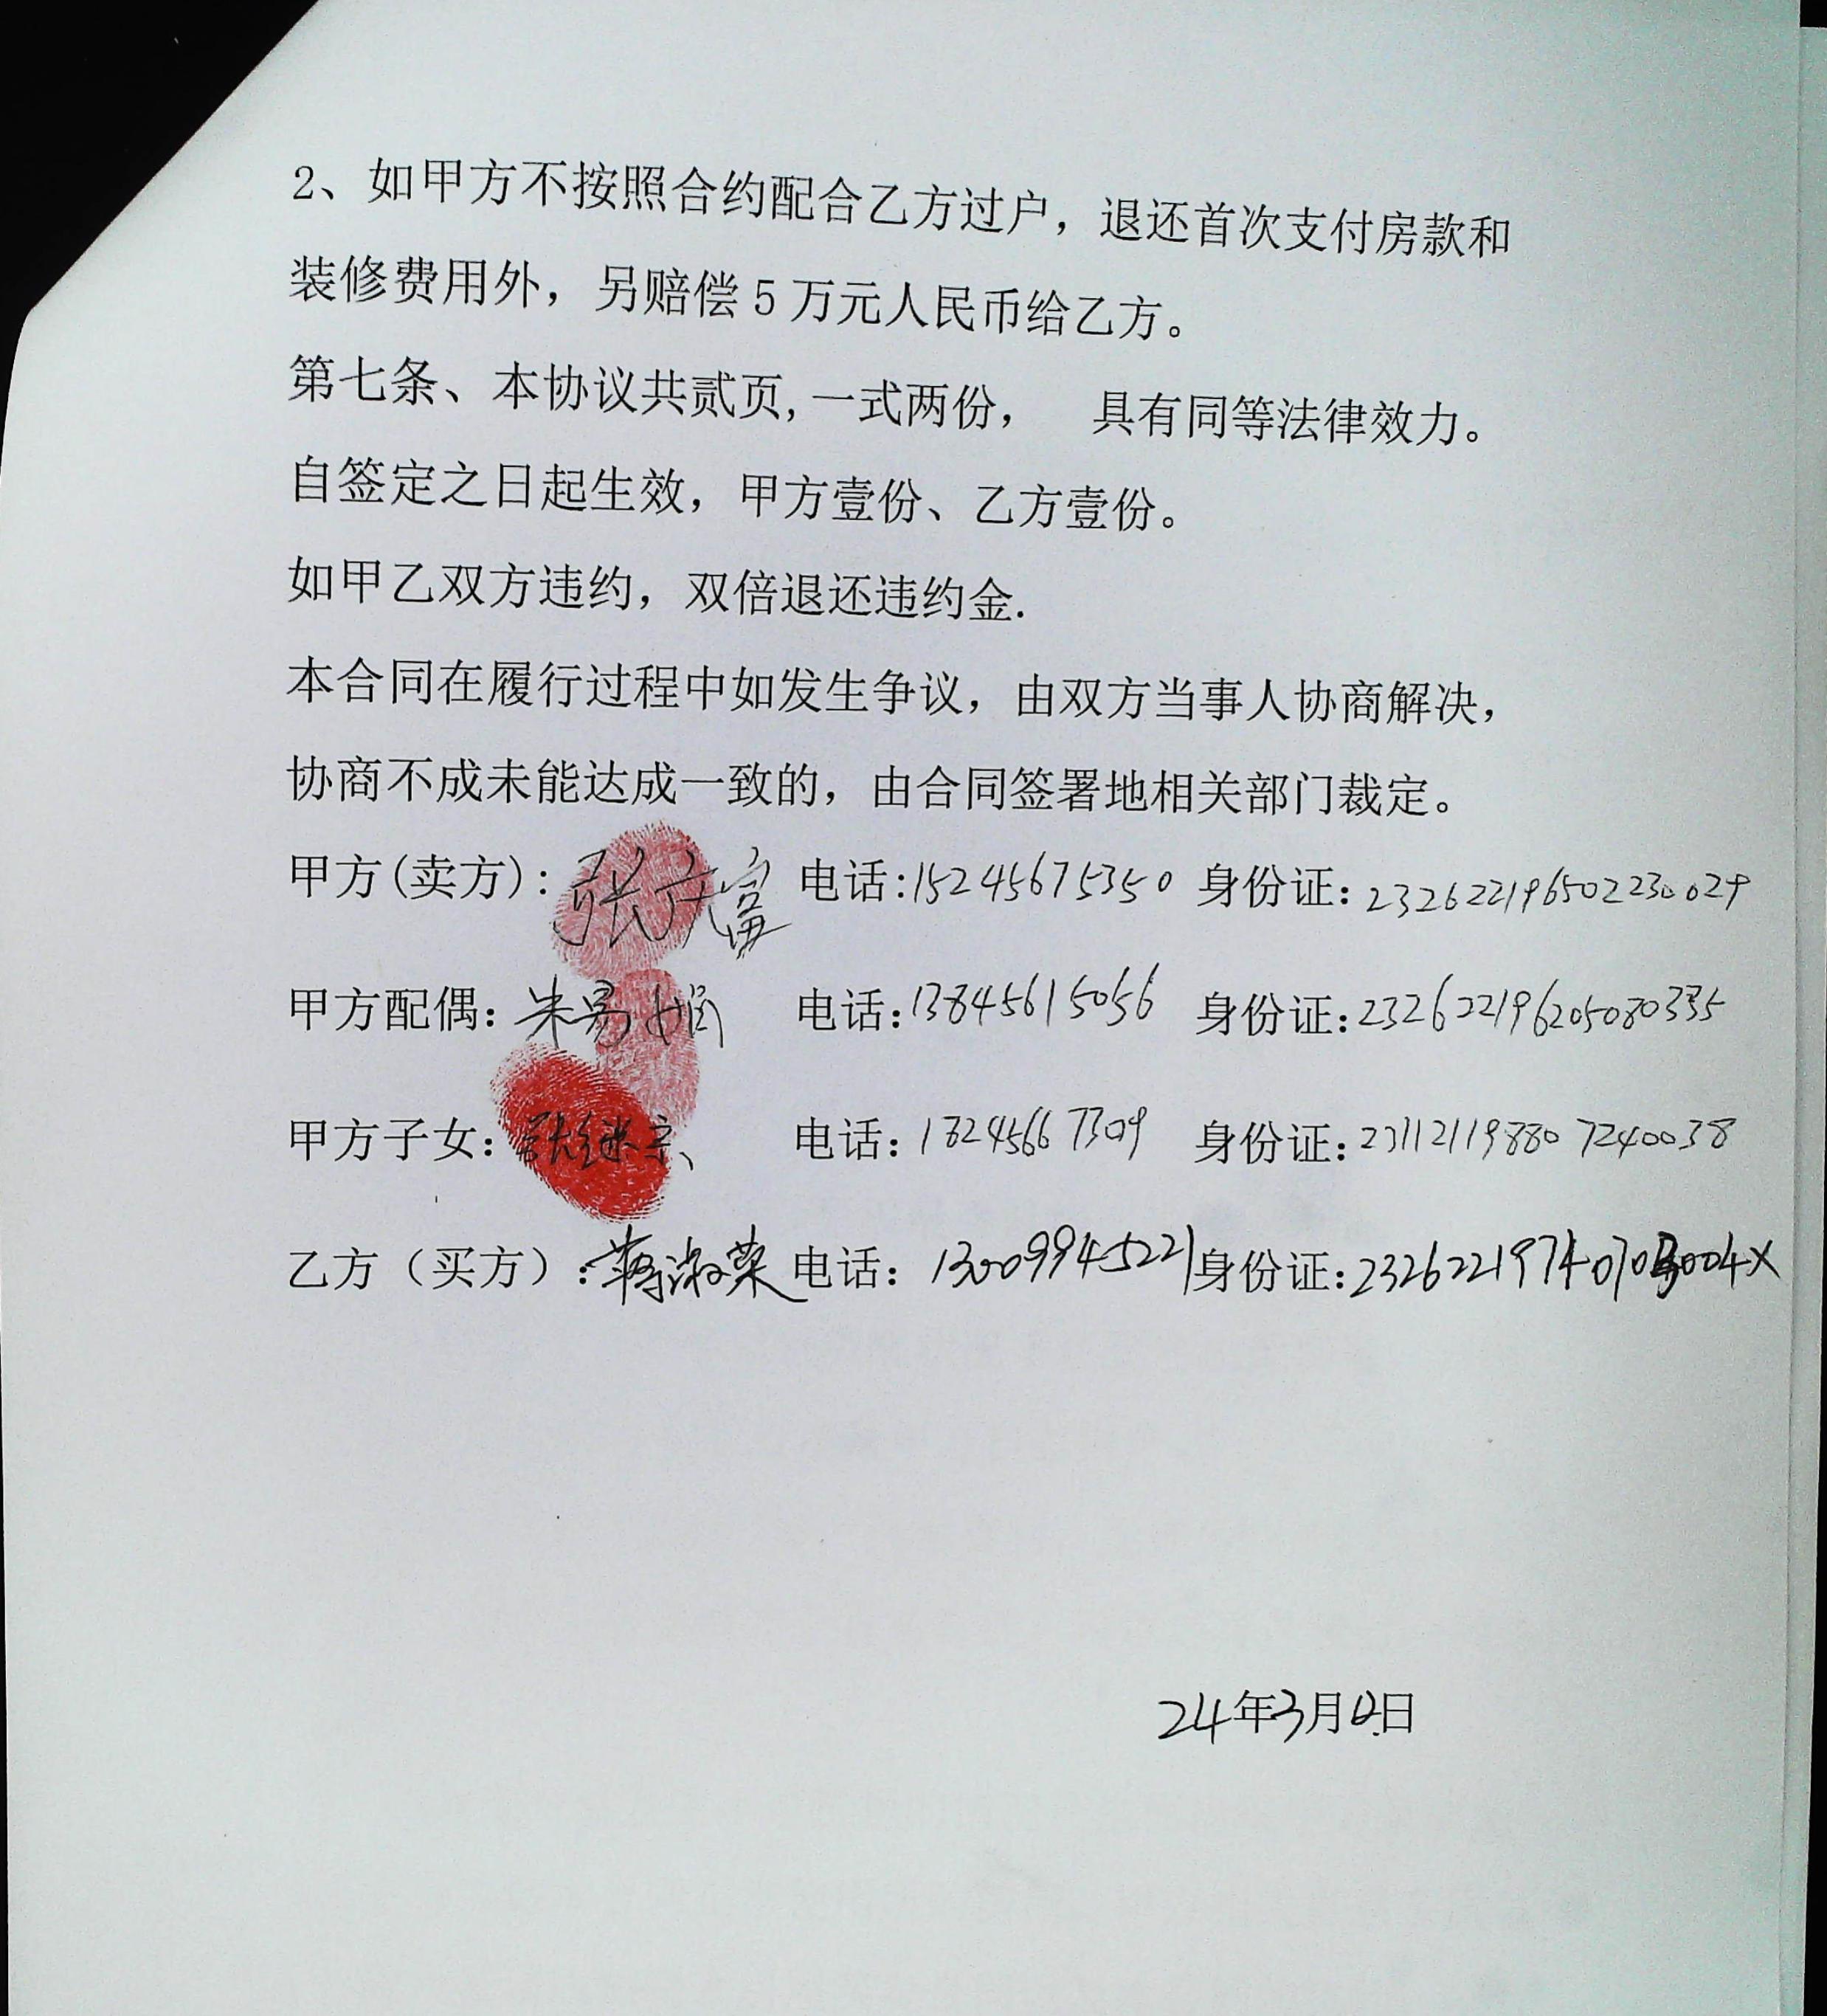 2、如甲方不按照合约配合乙方过户，退还首次支付房款和
装修费用外，另赔偿5万元人民币给乙方。
第七条、本协议共贰页,一式两份， 具有同等法律效力。
自签定之日起生效，甲方壹份、乙方壹份。
如甲乙双方违约，双倍退还违约金.
本合同在履行过程中如发生争议，由双方当事人协商解决，
协商不成未能达成一致的，由合同签署地相关部门裁定。
甲方(卖方): 张 富 电话:15245675350 身份证:
甲方配偶: 朱易娟 电话:13845615056 身份证:232622196205080335
甲方子女: 张继宗 电话: 18245667309 身份证:231121198807240038
乙方（买方）: 蒋淑荣 电话: 13009945221 身份证:
24年3月 日